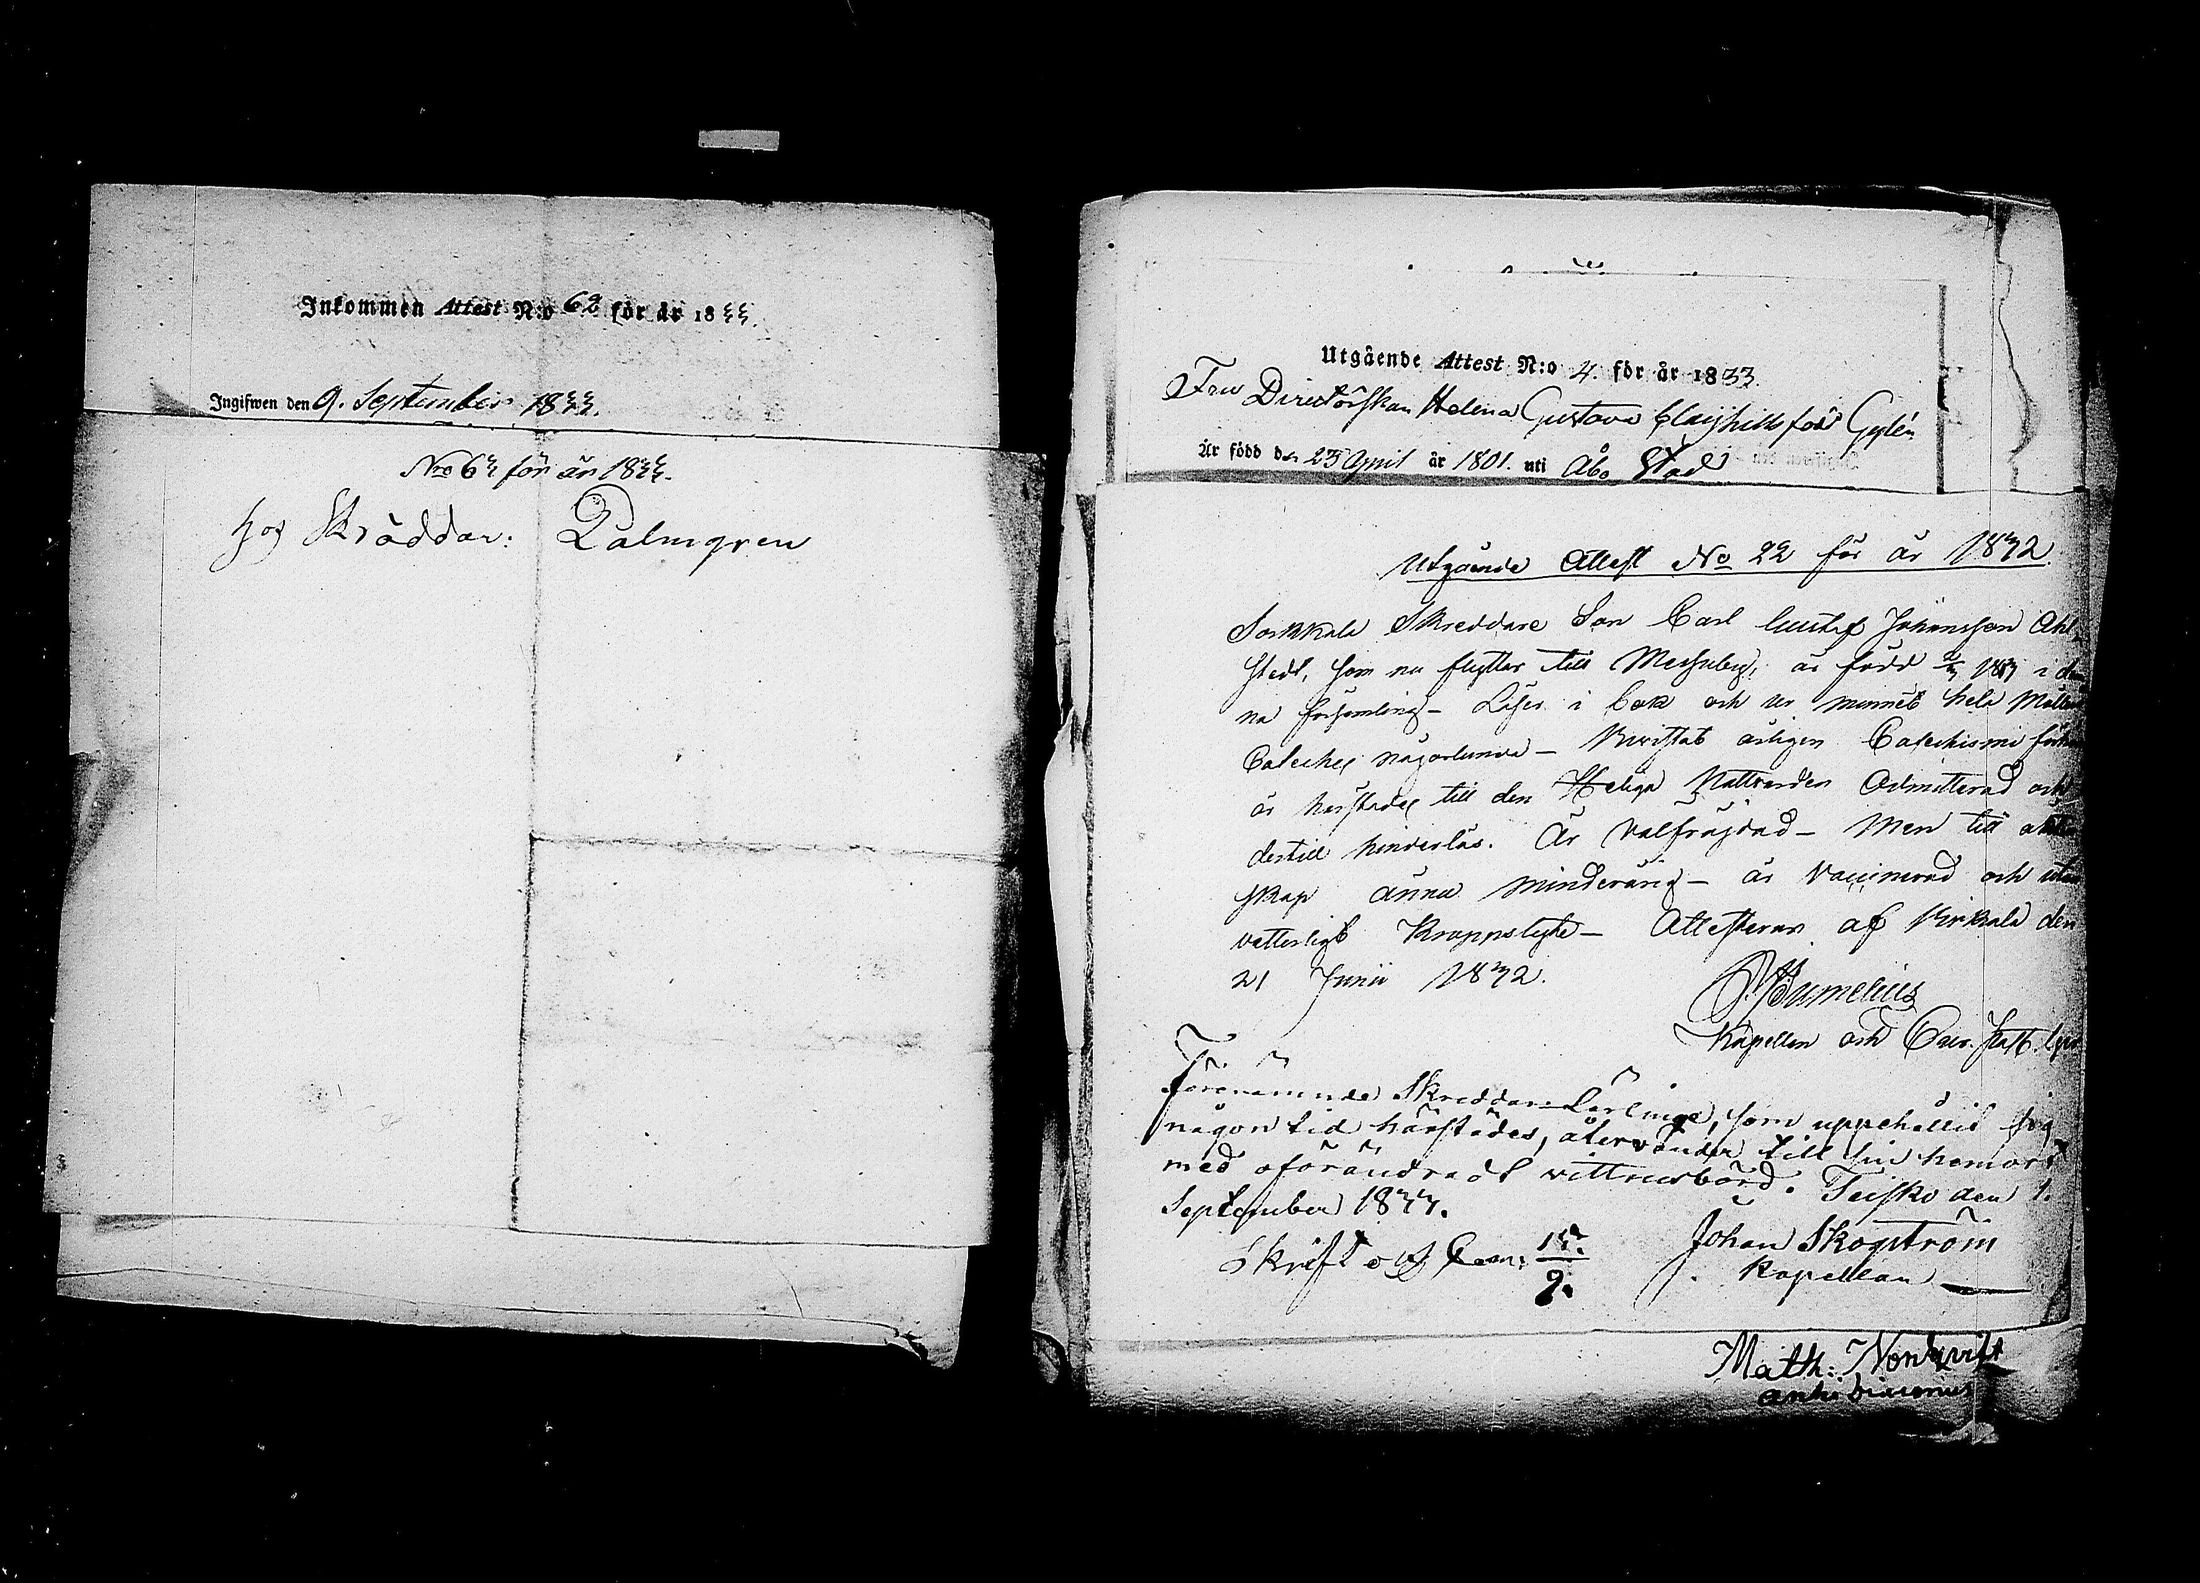 Inkommen Attest N:o 62 för år 1833.
Ingifwen den 9. September 1833.
Nro 63 för år 1833.
hos Skräddar: Palmgren
Utgående Attest N:o 4. för år 1833.
Fru Directörskan Helena Gustava född Gylén
Är född den 23 April år 1801. uti Åbo Stad
Utgående Attest No 22 för år 1832.
Sorkkala Skreddare Son Carl Gustaf Johansson Ahl
stedt, som nu flyttar till Messuby, är född i den
na församling – Läser i bok och ur minnet hela
Cateches någorlunda – Bevistat årligen Catechismi
är härstädes till den Heliga Nattvarden Admitterad och
dertill hinderlös. Är Välfräjdad – Men till
skap ännu minderårig – är Vaccinerad och utan
vetterligt Kroppslyte – Attesterar af Birkala den
21 Junii 1832.
Kapellan och
Förenämnde Skreddare Lärlinge, som uppehållit sig
någon tid härstädes, återvänder till sin hemort
med oförändradt vittnesbörd. Teisko den 1.
September 1833.
Skrift o Com: 15. 9.
Johan Skogström
Kapellan
Math: Nordqvist